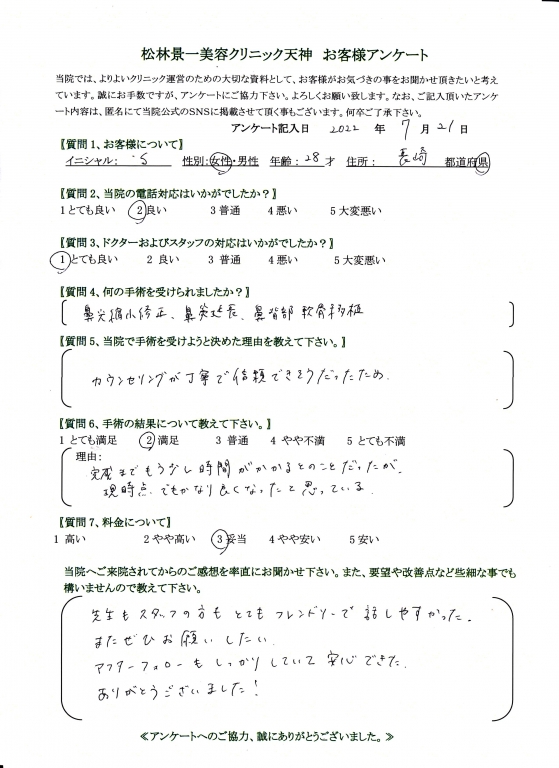 松林景一美容クリニック天神 お客様アンケート
当院では、よりよいクリニック運営のための大切な資料として、お客様がお気づきの事をお聞かせ頂きたいと考え
ています。誠にお手数ですが、アンケートにご協力下さい。よろしくお願い致します。なお、ご記入頂いたアンケ
ート内容は、匿名にて当院公式のSNSに掲載させて頂く事もございます。何卒ご了承下さい。
アンケート記入日 2022 年 7 月 21 日
【質問1、お客様について】
イニシャル: S 性別:女性・男性 年齢:28才 住所: 長崎 都道府県
【質問2、当院の電話対応はいかがでしたか?】
1とても良い 2良い 3普通 4悪い 5大変悪い
【質問3、ドクターおよびスタッフの対応はいかがでしたか?】
1とても良い 2 良い 3 普通 4悪い 5大変悪い
【質問4、何の手術を受けられましたか?】
鼻尖縮小修正、鼻尖延長、鼻背部軟骨移植
【質問5、当院で手術を受けようと決めた理由を教えて下さい。】
カウンセリングが丁寧で信頼できそうだったため。
【質問6、手術の結果について教えて下さい。】
1 とても満足 2 満足 3 普通 4 やや不満 5 とても不満
理由:
完成までもう少し時間がかかるとのことだったが、
現時点でもかなり良くなったと思っている。
【質問7、料金について】
1 高い 2 やや高い 3 妥当 4 やや安い 5 安い
当院へご来院されてからのご感想を率直にお聞かせ下さい。また、要望や改善点など些細な事でも
構いませんので教えて下さい。
先生もスタッフの方もとてもフレンドリーで話しやすかった。
またぜひお願いしたい。
アフターフォローもしっかりしていて安心できた。
ありがとうございました!
≪アンケートへのご協力、誠にありがとうございました。≫